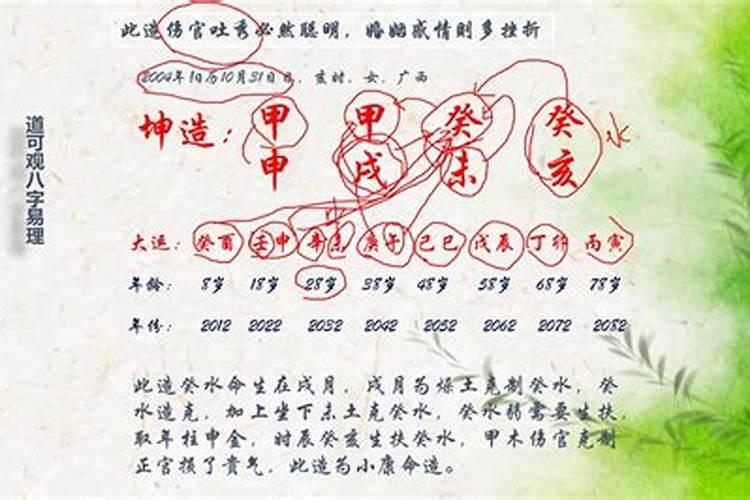 此造伤官吐秀必然聪明，婚姻感情则多挫折
2004年阳历10月31日，亥时，女，广西
坤造：甲 甲 癸 癸 水
申 戌 未 亥
道可观八字易理
大运：癸酉 壬申 辛未 庚午 己巳 戊辰 丁卯 丙寅
年龄：8岁 18岁 28岁 38岁 48岁 58岁 68岁 78岁
年份：2012 2022 2032 2042 2052 2062 2072 2082
此造癸水命生在戌月，戌月为燥土克制癸水，癸
水造克，加上坐下未土克癸水，癸水弱需要生扶，
取年柱申金，时辰癸亥生扶癸水，甲木伤官克制
正官损了贵气，此造为小康命造。